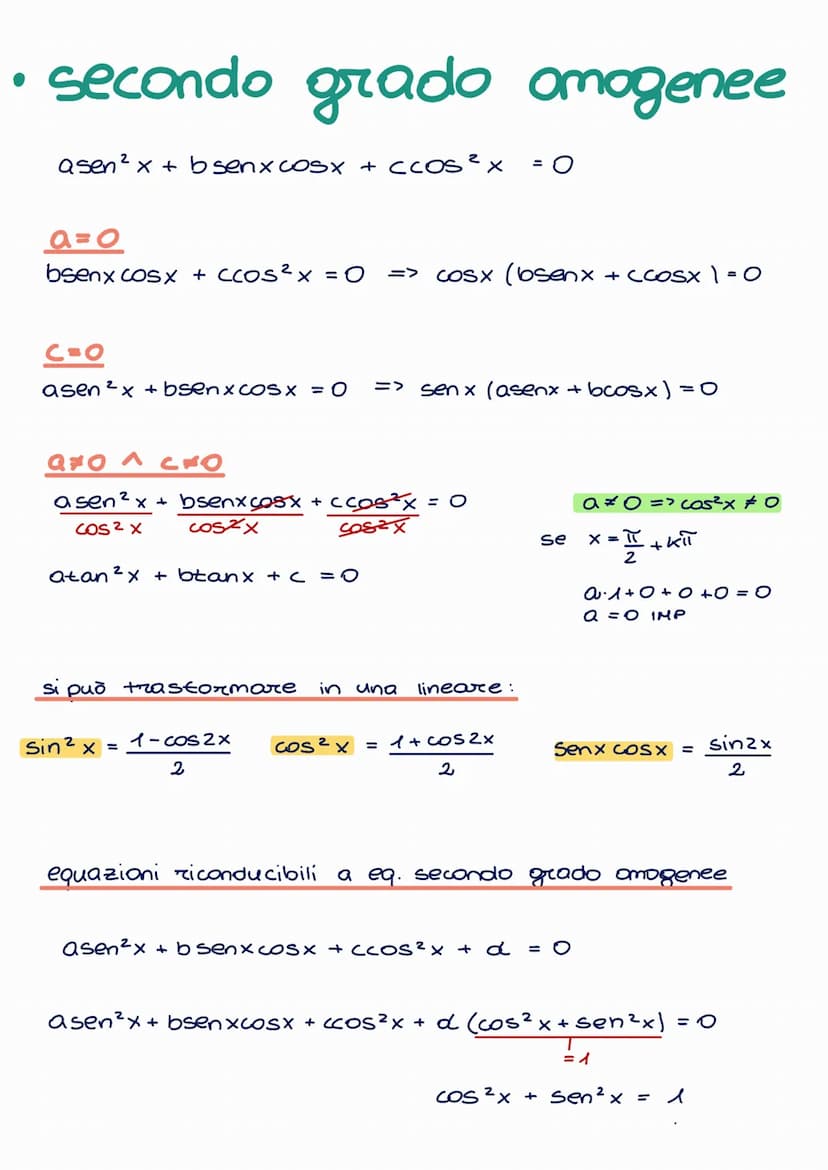 • secondo grado omogenee
asen²x + bsenxcosx + ccos²x = 0
a=0
bsenxcosx + ccos²x = 0 => cosx (bsenx + ccosx) = 0
c=0
asen²x + bsenxcosx = 0 => senx (asenx + bcosx) = 0
a≠0 ∧ c≠0
asen²x/cos²x + bsenxcosx/cos²x + ccos²x/cos²x = 0
a≠0 => cos²x ≠ 0
se x = π/2 + kπ
atan²x + btanx + c = 0
a·1+0+0+0=0
a=0 IMP
si può trasformare in una lineare:
sin²x = 1-cos2x/2 cos²x = 1+cos2x/2 senx cosx = sin2x/2
equazioni riconducibili a eq. secondo grado omogenee
asen²x + bsenxcosx + ccos²x + d = 0
asen²x + bsenxcosx + ccos²x + d (cos²x + sen²x) = 0
=1
cos²x + sen²x = 1